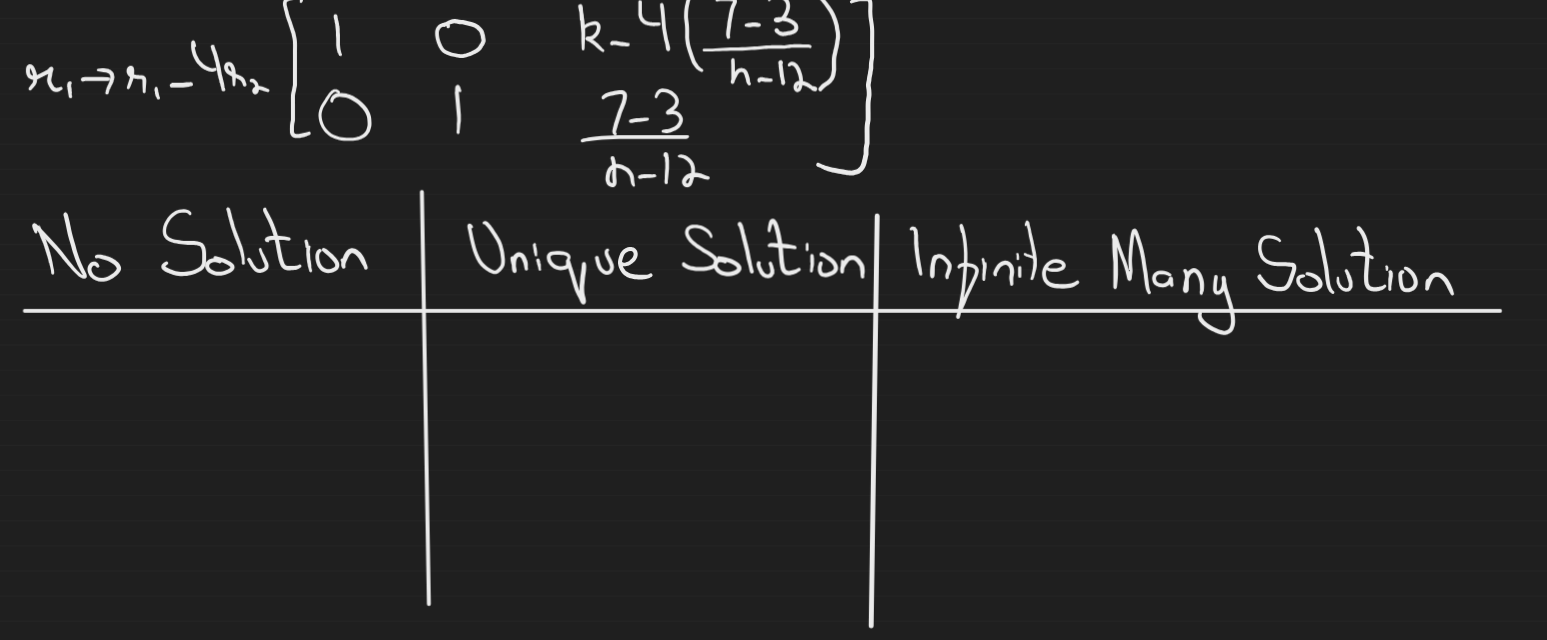 r₁→r₁-4r₂ [1 0 k-4(7-3/h-12)]
[0 1 7-3/h-12]
No Solution | Unique Solution | Infinite Many Solution